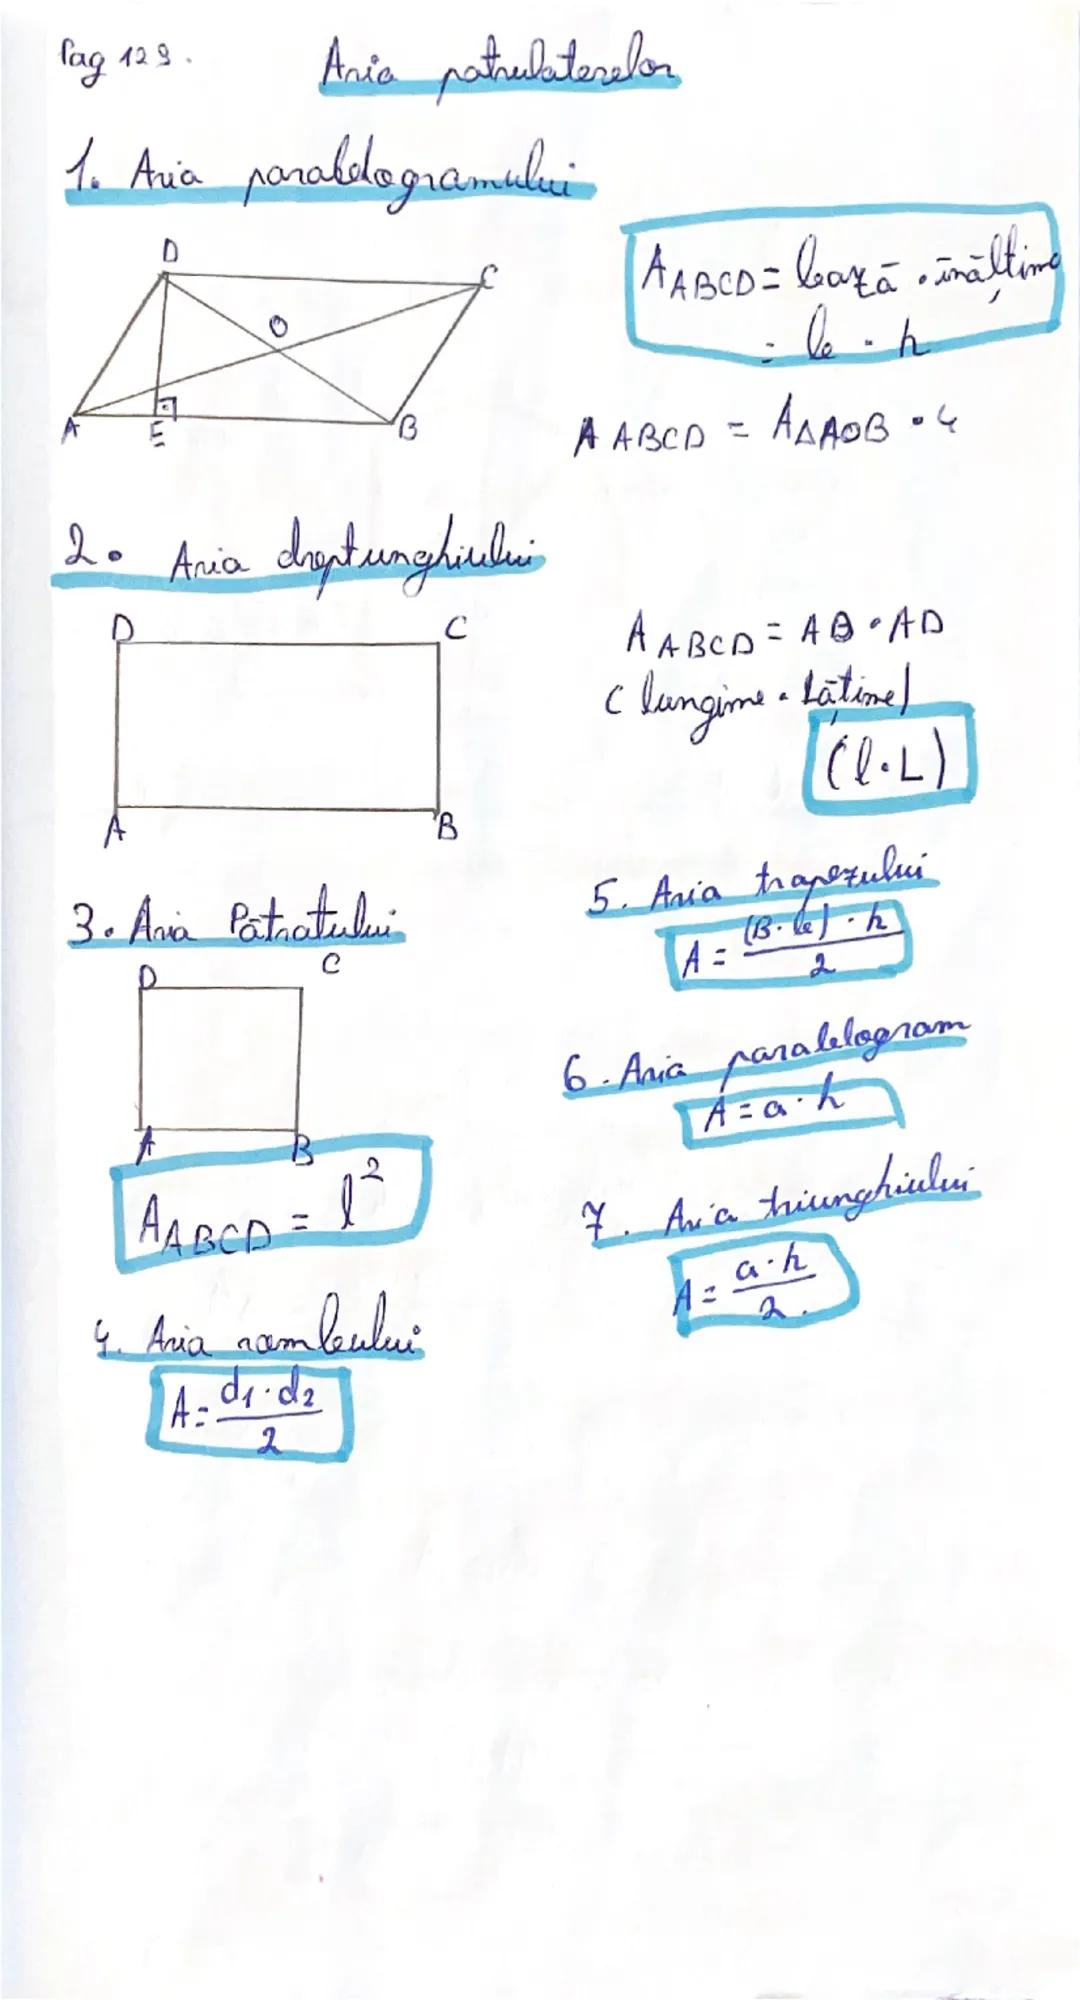 Pag 129.
Aria patrulaterelor
1. Aria paralelogramului
D
C
O
A
E
B
A ABCD = bază · înălțime
= b · h
A ABCD = A△AOB · 4
2. Aria dreptunghiului
D
C
A
B
A ABCD = AB · AD
( lungime · lățime)
(l·L)
3. Aria Pătratului
D
C
A
B
A ABCD = l²
4. Aria rombului
A = d1·d2 / 2
5. Aria trapezului
A = (B·b)·h / 2
6. Aria paralelogram
A = a·h
7. Aria triunghiului
A = a·h / 2.